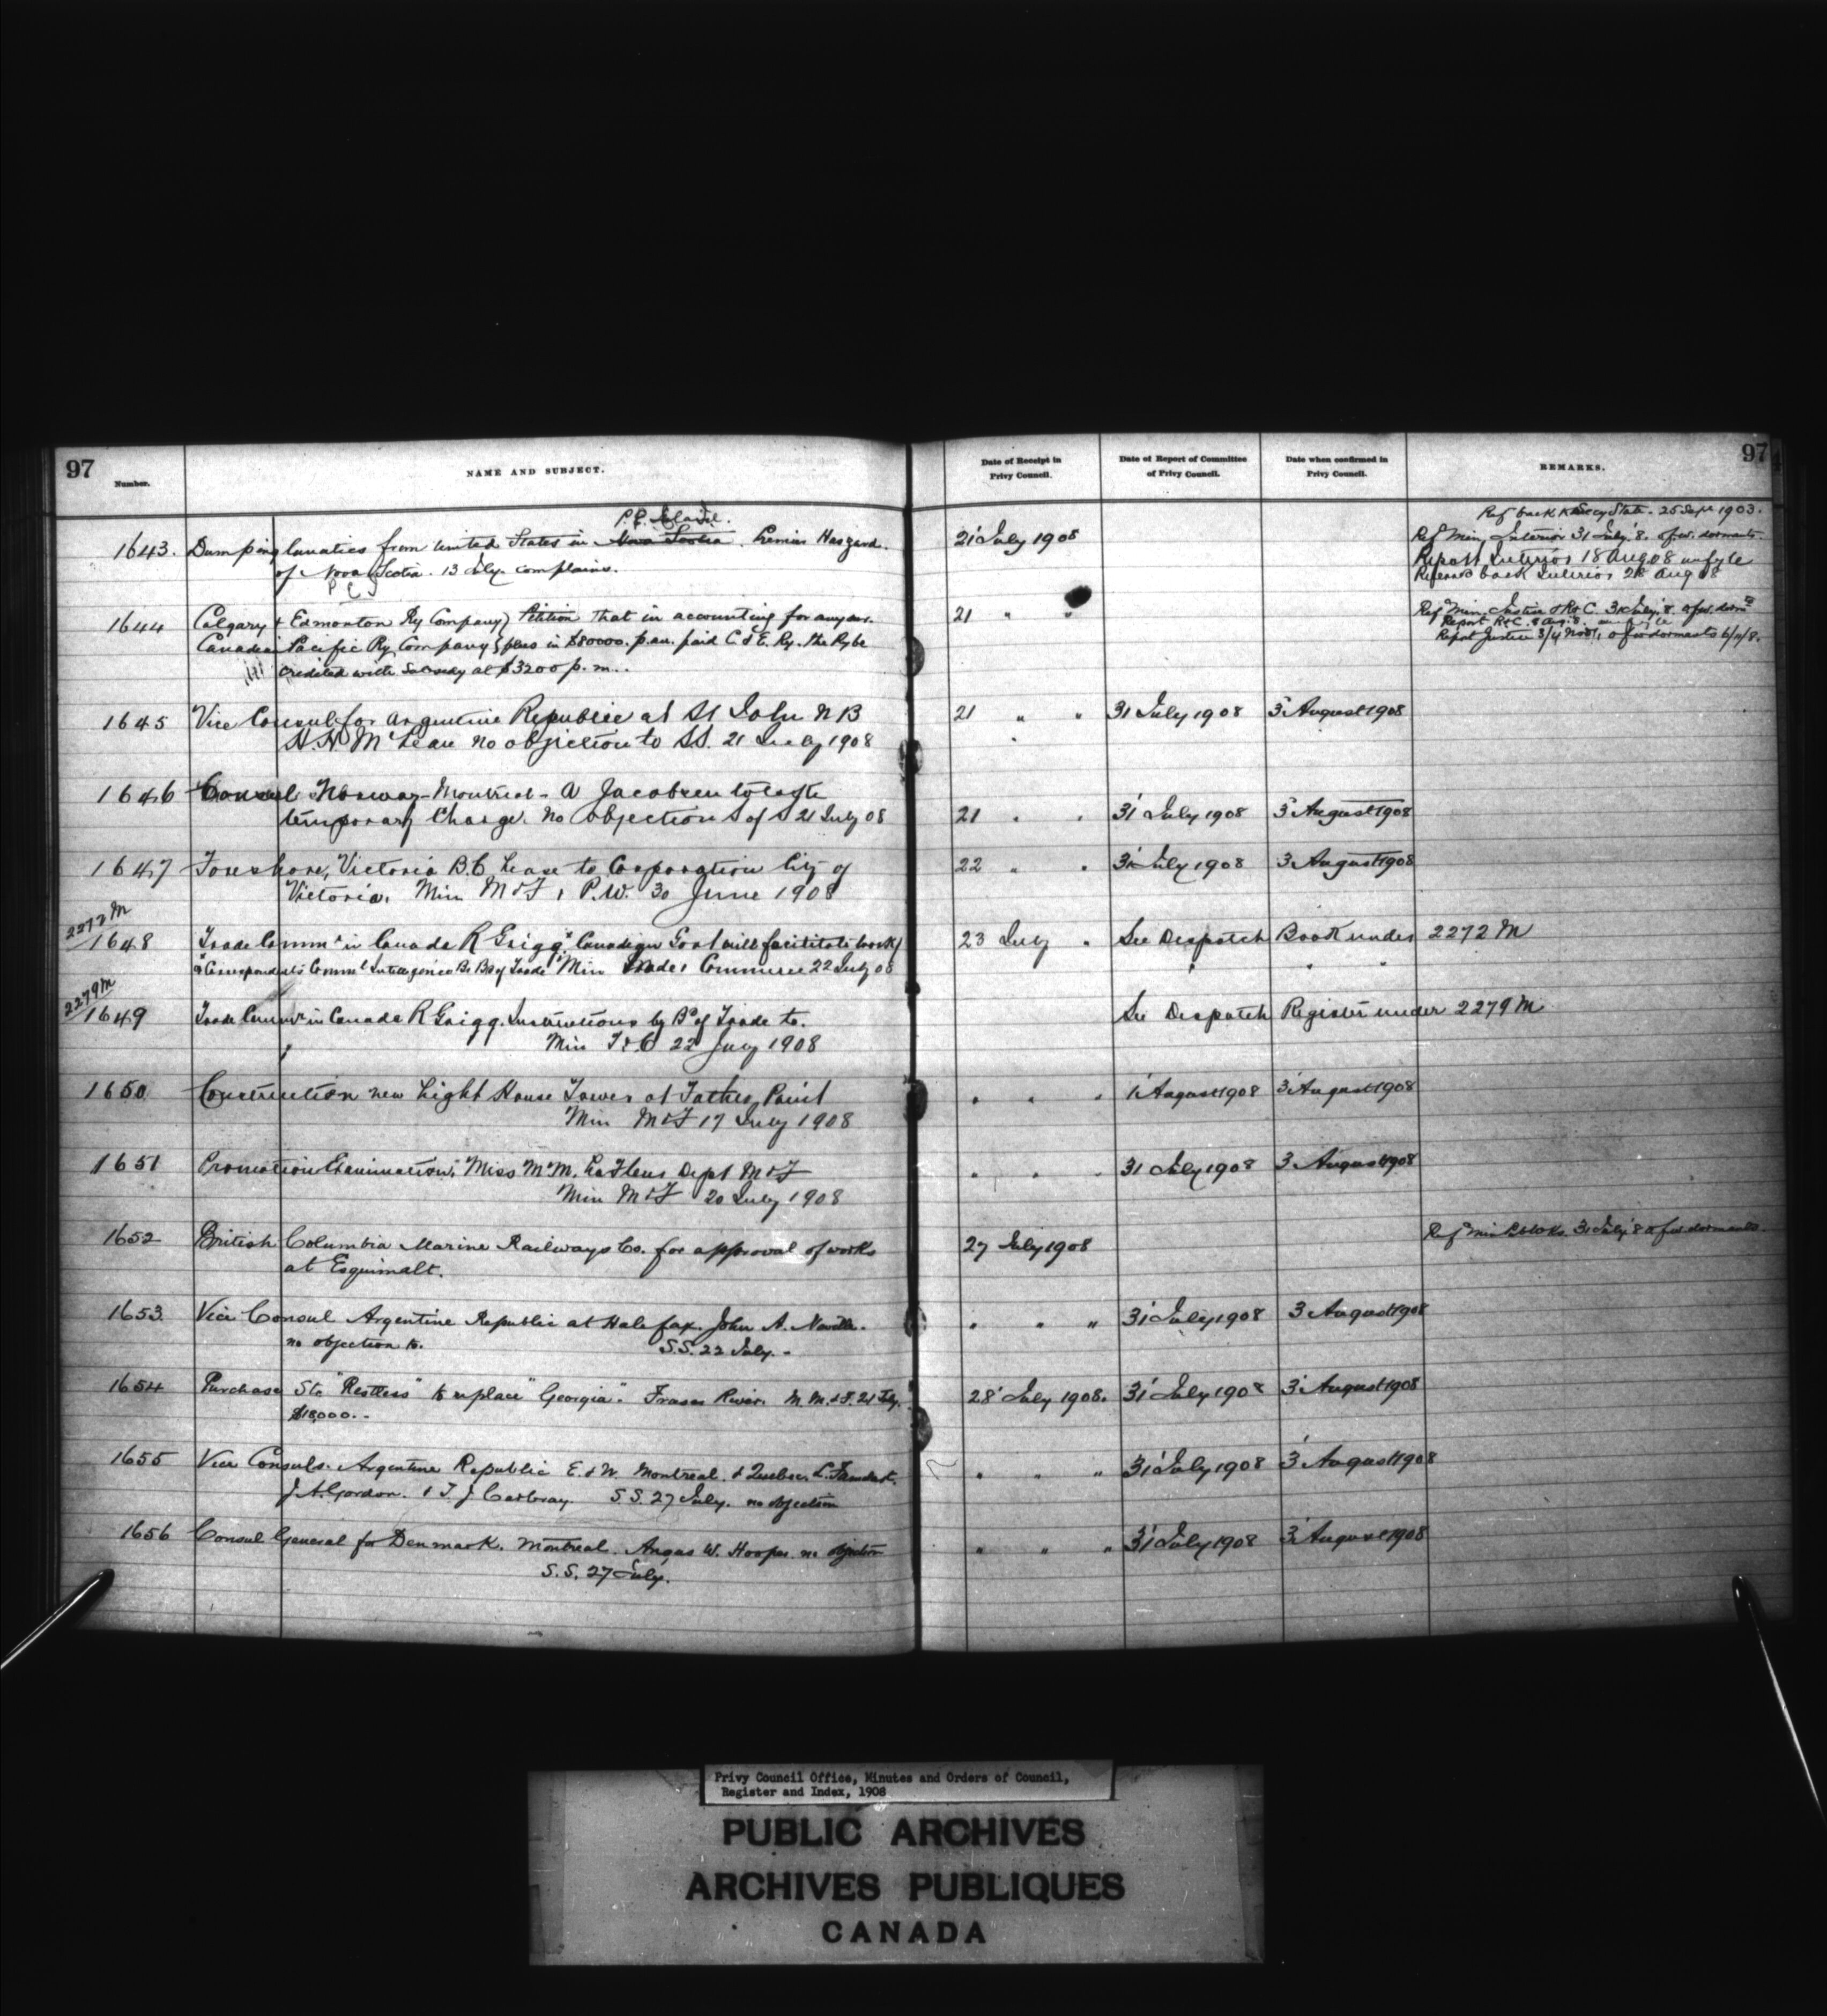 97
Number.
NAME AND SUBJECT.
Date of Receipt in Privy Council.
Date of Report of Committee of Privy Council.
Date when confirmed in Privy Council.
REMARKS.
97
P.E. Island.
Ref back to Secy State. 25 Sept 1903.
1643. Dumping lunatics from United States in Nova Scotia. Premier Hasgard. 21' July 1908 Ref Min Interior 31 July '8.
of Nova Scotia. 13 July complains. Report Interior 18 Aug 08
P E I back Interior 28 Aug 08
1644 Calgary & Edmonton Ry Company) Petition that in accounting for any sur- 21 " " Ref Min. Justice & R&C. 31 July '8.
Canadian Pacific Ry Company } plus in $80000. p.an. paid C & E. Ry. the Ry be Report R&C. 8 Aug. 8.
credited with Subsidy at $3200 p. m.. Report Justice
1645 Vice Consul for Argentine Republic at St John N B 21 " " 31 July 1908 3 August 1908
H. H. McLean no objection to SS. 21 July 1908
1646 Consul Norway - Montreal - A Jacobsen to
temporary Charge. No Objection S of S 21 July 08 21 " " 31 July 1908 3 August 1908
1647 Foreshore, Victoria B.C Lease to Corporation City of 22 " " 31 July 1908 3 August 1908
Victoria. Min M & F, P.W. 30 June 1908
2272 M
1648 Trade Commr in Canada R Grigg. Canadian Govt will facilitate work 23 July " See Despatch Book under 2272 M
& Correspondents Comml Intelligence Br. Bd of Trade Min Trade & Commerce 22 July 08 " " "
2279 M
1649 Trade Commr in Canada R Grigg. Instructions by Bd of Trade to. See Despatch Register under 2279 M
Min T & C 22 July 1908
1650 Construction new Light House Tower at Father Point " " " 1 August 1908 3 August 1908
Min M & F 17 July 1908
1651 Promotion Examination, Miss M. M. Dept M & F " " " 31 July 1908 3 August 1908
Min M & F 20 July 1908
1652 British Columbia Marine Railways Co. for approval of works 27 July 1908 Ref Min P. Works 31 July '8
at Esquimalt.
1653 Vice Consul Argentine Republic at Halifax. John A. Neville. " " " 31 July 1908 3 August 1908
no objection to. S.S. 22 July. -
1654 Purchase Str "Restless" to replace "Georgia". Fraser River. M. M. & F. 21 July. 28' July 1908. 31 July 1908 3 August 1908
$18,000. -
1655 Vice Consuls. Argentine Republic Montreal. & Quebec, L. " " " 31 July 1908 3 August 1908
J A. Gordon. & T. J Carbray. S S. 27 July. no objection
1656 Consul General for Denmark. Montreal. Angus W. Hooper no objection " " " 31 July 1908 3 August 1908
S. S. 27 July.
Privy Council Office, Minutes and Orders of Council,
Register and Index, 1908
PUBLIC ARCHIVES
ARCHIVES PUBLIQUES
CANADA